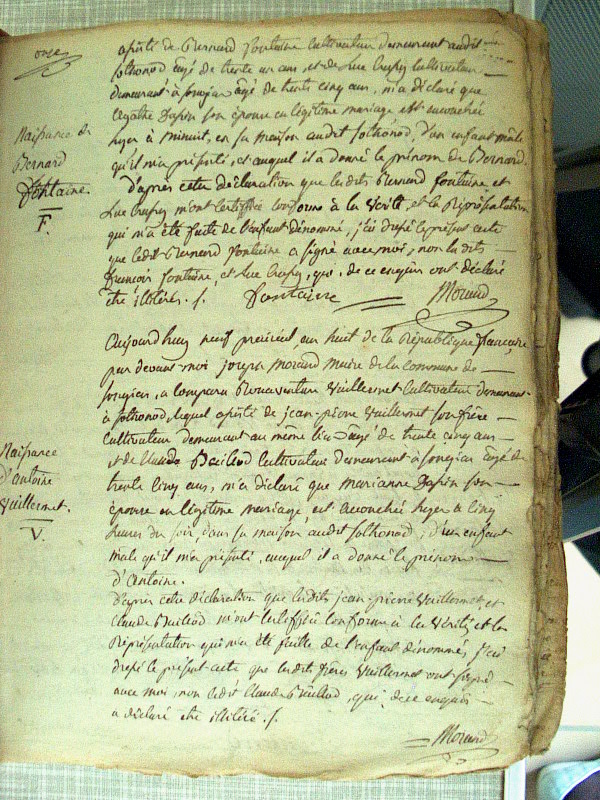 onze
assisté de Bernard fontaine Cultivateur demeurant audit
sothonod âgé de trente un ans, et de Luc Cultivateur
demeurant à songieu âgé de trente cinq ans, m'a déclaré que
son épouse en légitime mariage est accouchée
hyer à minuit, en sa maison audit sothonod, d'un enfant mâle
qu'il m'a présenté, et auquel il a donné le prénom de Bernard.
Naissance de
Bernard
fontaine
F.
d'après cette déclaration que lesdits Bernard fontaine, et
Luc m'ont Certiffiée conforme à la Vérité, et la Représentation
qui m'a été faite de l'enfant dénommé, j'ai dressé le présent acte
que ledit Bernard fontaine a signé avec moi, non lesdits
françois fontaine, et Luc, qui, de ce enquis ont déclaré
être illitérés. /.
fontaine
Morand
Aujourd'huy neuf prairéal an huit de la République française,
par devant moi joseph Morand Maire de la commune de
songieu, a comparu Bonaventure Vuillermet Cultivateur demeurant
à sothonod, lequel assisté de jean-pierre Vuillermet son frère
Cultivateur demeurant au même lieu âgé de trente cinq ans
et de Claude Bailiod Cultivateur demeurant à songieu âgé de
trente cinq ans, m'a déclaré que Marianne son
épouse en légitime mariage, est accouchée hyer à Cinq
heures du soir, dans sa maison audit sothonod, d'un enfant
mâle qu'il m'a présenté, auquel il a donné le prénom
d'Antoine.
Naissance
d'antoine
Vuillermet.
V.
d'après cette déclaration que lesdits jean-pierre Vuillermet et
Claude Bailiod m'ont Certiffiée Conforme à la Vérité, et la
Représentation qui m'a été faitte de l'enfant dénommé, j'ai
dressé le présent acte que lesdits frères Vuillermet ont signé
avec moi, non ledit Claude Bailiod, qui, de ce enquis
a déclaré être illitéré. /.
Morand